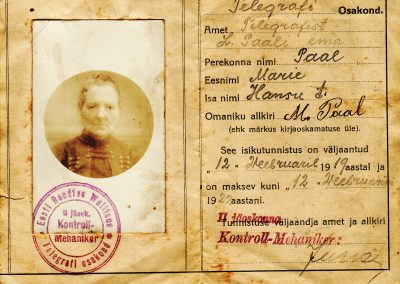 Telegrafi
Osakond.
Amet Telegrafist
L. Paali ema
Perekonna nimi Paal
Eesnimi Marie
Isa nimi Hansu t.
Omaniku allkiri M. Paal
(ehk märkus kirjaoskamatuse üle).
See isikutunnistus on väljaantud
"12." Weebruaril 19 aastal ja
on maksev kuni "12." Weebruarini
19 aastani.
Tunnistuse väljaandja amet ja allkiri
II jäoskonna
Kontroll-Mehaniker:
Eesti Raudtee Walitsus
II jäosk.
Kontroll-
Mehaniker
Telegrafi osakond